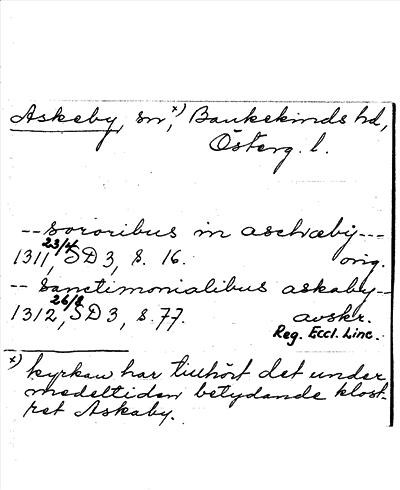 Askeby, sn,ˣ⁾ Bankekinds hd,
Österg. l.
-- sororibus in aschæby ---
1311 23/4, SD 3, s. 16. orig.
-- sanctimonialibus askaby --
1312 26/8, SD 3, s. 77. avskr.
Reg. Eccl. Linc.
ˣ⁾ kyrkan har tillhört det under
medeltiden betydande klost-
ret Askaby.